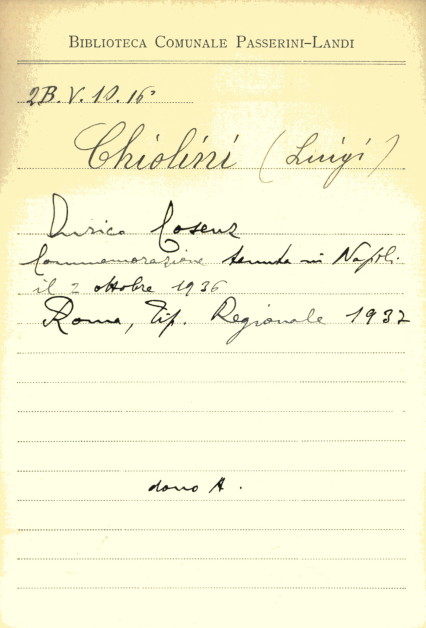 BIBLIOTECA COMUNALE PASSERINI-LANDI
2B.V.10.16
Chiolini (Luigi)
Enrico Cosenz
Commemorazione tenuta in Napoli
il 2 ottobre 1936
Roma, Tip. Regionale 1937
dono A.